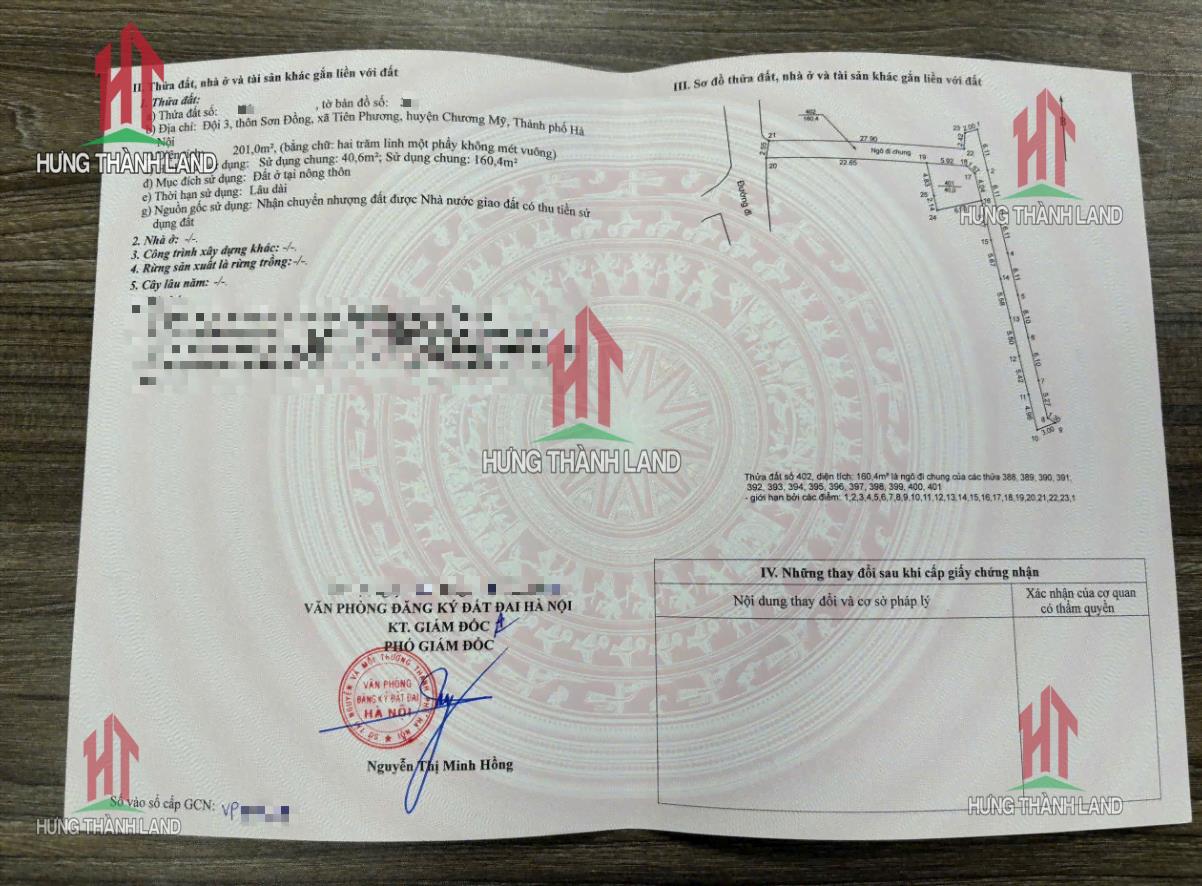 II. Thửa đất, nhà ở và tài sản khác gắn liền với đất
1. Thửa đất:
a) Thửa đất số: , tờ bản đồ số:
b) Địa chỉ: Đội 3, thôn Sơn Đồng, xã Tiên Phương, huyện Chương Mỹ, Thành phố Hà
Nội
201,0m², (bằng chữ: hai trăm linh một phẩy không mét vuông)
dụng: Sử dụng chung: 40,6m²; Sử dụng chung: 160,4m²
đ) Mục đích sử dụng: Đất ở tại nông thôn
e) Thời hạn sử dụng: Lâu dài
g) Nguồn gốc sử dụng: Nhận chuyển nhượng đất được Nhà nước giao đất có thu tiền sử
dụng đất
2. Nhà ở: -/-.
3. Công trình xây dựng khác: -/-.
4. Rừng sản xuất là rừng trồng:-/-.
5. Cây lâu năm: -/-.
VĂN PHÒNG ĐĂNG KÝ ĐẤT ĐAI HÀ NỘI
KT. GIÁM ĐỐC
PHÓ GIÁM ĐỐC
SỞ TÀI NGUYÊN VÀ MÔI TRƯỜNG THÀNH PHỐ HÀ NỘI
VĂN PHÒNG
ĐĂNG KÝ ĐẤT ĐAI
HÀ NỘI
Nguyễn Thị Minh Hồng
Số vào sổ cấp GCN: VP
III. Sơ đồ thửa đất, nhà ở và tài sản khác gắn liền với đất
B
402
160,4
21
27.90
23
2.00
1
2.42
22
2.55
Ngõ đi chung
20
22.65
19
5.92
18
17
401
4.83
2.14
24
6.11
Đường đi
15
5.67
5.58
13
5.50
12
5.42
11
4.96
10
3.00
9
8
5.27
7
6.10
6.10
6.11
Thửa đất số 402, diện tích: 160,4m² là ngõ đi chung của các thửa 388, 389, 390, 391,
392, 393, 394, 395, 396, 397, 398, 399, 400, 401
- giới hạn bởi các điểm: 1,2,3,4,5,6,7,8,9,10,11,12,13,14,15,16,17,18,19,20,21,22,23,1
IV. Những thay đổi sau khi cấp giấy chứng nhận
Nội dung thay đổi và cơ sở pháp lý
Xác nhận của cơ quan
có thẩm quyền
HƯNG THÀNH LAND
HƯNG THÀNH LAND
HƯNG THÀNH LAND
HƯNG THÀNH LAND
HƯNG THÀNH LAND